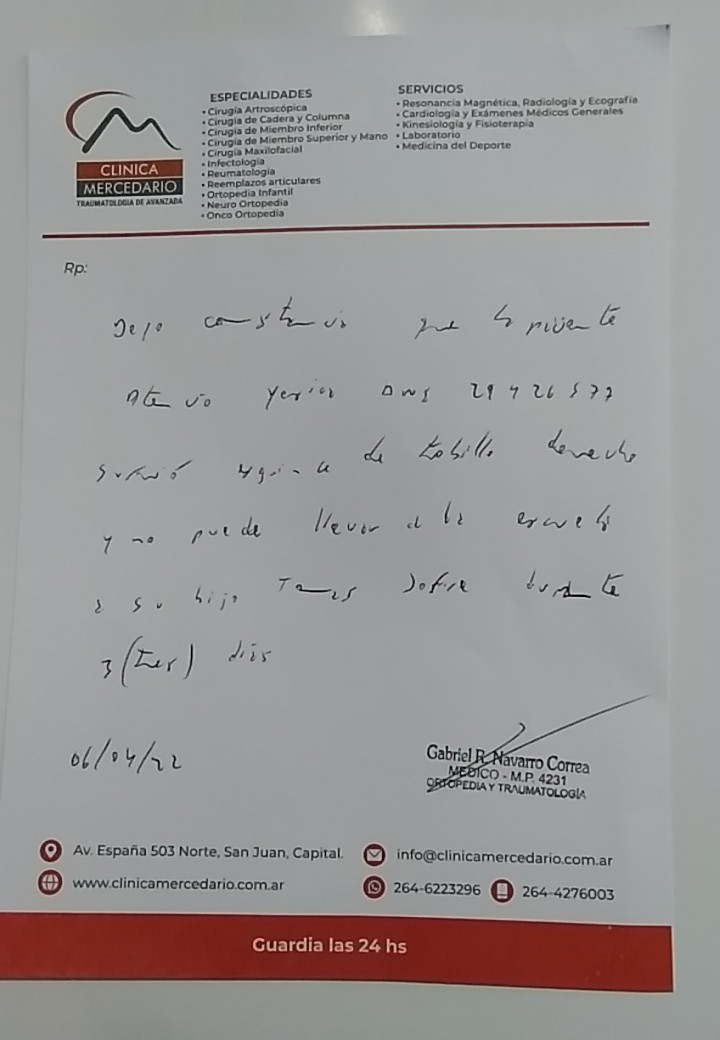 CLINICA
MERCEDARIO
TRAUMATOLOGIA DE AVANZADA
ESPECIALIDADES
• Cirugía Artroscópica
• Cirugía de Cadera y Columna
• Cirugía de Miembro Inferior
• Cirugía de Miembro Superior y Mano
• Cirugía Maxilofacial
• Infectología
• Reumatología
• Reemplazos articulares
• Ortopedia Infantil
• Neuro Ortopedia
• Onco Ortopedia
SERVICIOS
• Resonancia Magnética, Radiología y Ecografía
• Cardiología y Exámenes Médicos Generales
• Kinesiología y Fisioterapia
• Laboratorio
• Medicina del Deporte
Rp:
Dejo constancia que la paciente
DNI 29426577
sufrió esguince de tobillo derecho
y no puede llevar a la escuela
a su hijo durante
3 (tres) días
06/04/22
Gabriel R. Navarro Correa
MEDICO - M.P. 4231
ORTOPEDIA Y TRAUMATOLOGÍA
Av. España 503 Norte, San Juan, Capital.
info@clinicamercedario.com.ar
www.clinicamercedario.com.ar
264-6223296
264-4276003
Guardia las 24 hs